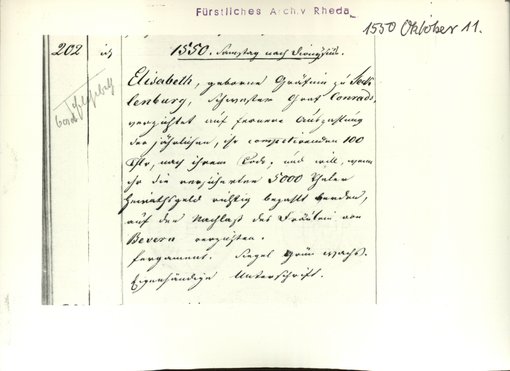 Fürstliches Archiv Rheda
1550 Oktober 11.
202
1550. Samstag nach Dionysius.
Elisabeth, geborne Gräfin zu Teck-
lenburg, Schwester Graf Conrads,
verzichtet auf fernere Auszahlung
der jährlichen, ihr competirenden 100
Thlr, nach ihrem Tode, und will, wenn
ihr die versicherten 5000 Thaler
Heirathsgeld richtig bezahlt werden,
auf den Nachlaß des Fräulein von
Bevern verzichten.
Pergament. Siegel Grün Wachs.
Eigenhändige Unterschrift.